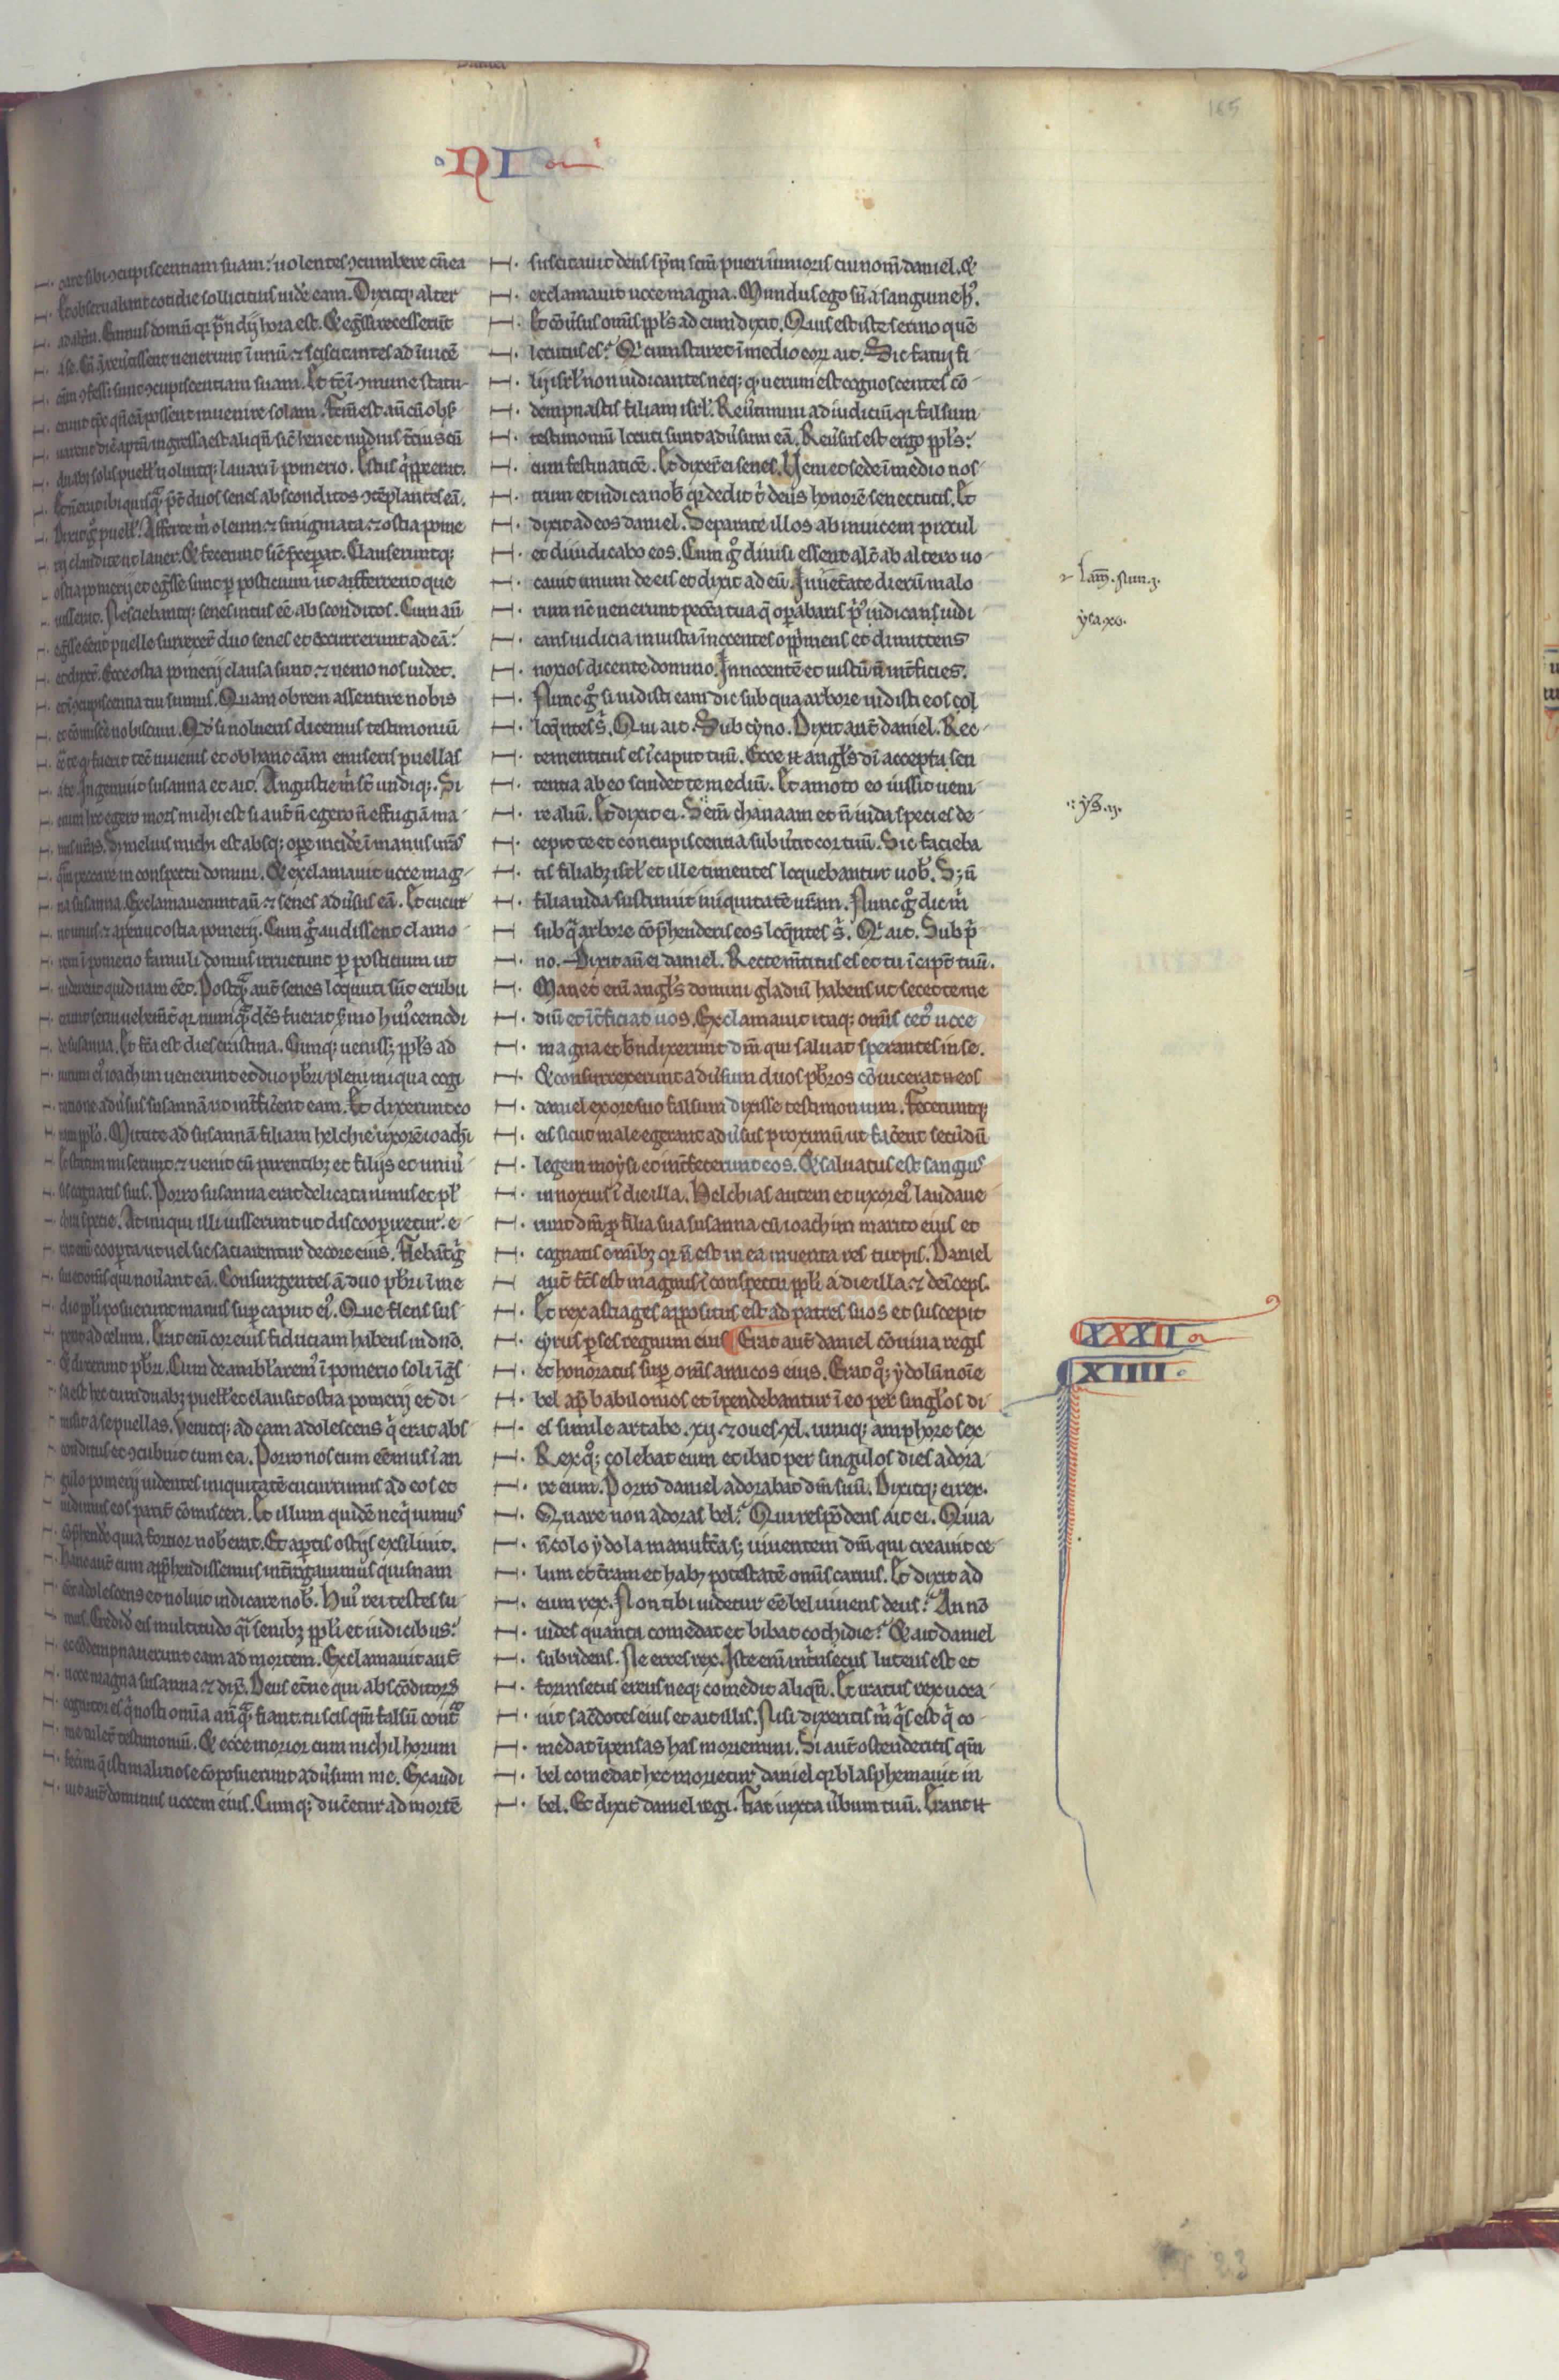 165
NI
care sibi ɔcupiscentiam suam: uolentes ɔcumbere cū ea
Et obseruabant cotidie sollicitius uidē eam. Dixitq; alter
ad alt̄um. Eamus domū qr p̄ndij hora est. Et eg̃ssi recesserūt
a se. Cū q̢ reūtissent uenerunt ī unū ⁊ sciscitantes ad īuicē
cām ɔfessi sunt ɔcupiscentiam suam. Et tc̄ ī ɔmune statu
erunt tp̄s qn̄ eā possent inuenire solam. Fc̄m est aū cū obs̄
uarent diē aptū ingressa est aliqn̄ sic̄ heri et nudius t̄cius cū
duabȝ solis puell' uoluitq; lauari ī pomerio. Estus q̍ppe erat.
Et n̄ erat ibi quisq̃ p̄t̄ duos senes absconditos ɔtēplantes eā.
Dixit g̊ puell'. Afferte m̍ oleum ⁊ smigmata ⁊ ostia pome
rij claudite ut lauer. Et fecerunt sic̄ p̄cep̄at. Clauseruntq;
ostia pomerij et eg̃sse sunt p̱ posticium ut afferrent que
iusserat. Nesciebantq; senes intus eē absconditos. Cum aū
eg̃sse eēnt puelle surrexer̄ duo senes et accurrerunt ad eā:
et dixer̄. Ecce ostia pomerij clausa sunt ⁊ nemo nos uidet.
et ī ɔcupiscentia tui sumus. Quam obrem assentire nobis
et cōmiscē nobiscum. Qd̍ si nolueris dicemus testimoniū
ɔ̄ te q̢ fuerit tecū iuuenis et ob hanc cām emiseris puellas
a te. Ingemuit susanna et ait. Angustie m̍ st̄ undiq;. Si
enim hoc egero mors michi est si aut̄ n̄ egero n̄ effugiā ma
nus ūras. Sꝫ melius michi est absq; ope incidē ī manus ūras
q̃m peccare in conspectu domini. Et exclamauit uoce mag
na susanna. Exclamauerunt aū ⁊ senes adūsus eā. Et cucur
rit unus ⁊ aperuit ostia pomerij. Cum g̊ audissent clamo
rem ī pomerio famuli domus irruerunt p̱ posticium ut
uiderent quidnam eēt. Postq̃ aut̄ senes locuti sūt erubu
erunt serui uehem̄t̄ qr nunq̃ dc̄s fuerat s̄mo hui̍cemodi
de susanna. Et fc̄a est dies crastina. Cumq; uenissꝫ ppl̄s ad
uirum ei̍ ioachim uenerunt et duo p̄bri pleni iniqua cogi
tatione adūsus susannā ut int̄fic̄ent eam. Et dixerunt co
ram pplo. Mittite ad susannā filiam helchie uxorē ioachī
Et statim miserunt ⁊ uenit cū parentibȝ et filijs et uniū
sis cognatis suis. Porro susanna erat delicata nimis et pl̄
chra specie. At iniqui illi iusserunt ut discoop̱iretur. e
rat eī coop̱ta ut uel sic satiarentur decore eius. Flebāt g̊
sui et om̄s qui nou̍ant eā. Consurgentes ā duo p̄bri ī me
dio ppli posuerunt manus sup̱ caput ei̍. Que flens sus
pexit ad celum. Erat eī cor eius fiduciam habens in dn̄o.
Et dixerunt p̄bri. Cum deambl̄arem̍ ī pomerio soli īg̃s
sa est hec cum duabȝ puell' et clausit ostia pomerij et di
misit a se puellas. Venitq; ad eam adolescens q̍ erat abs
conditus et ɔcubuit cum ea. Porro nos cum eēmus ī an
gulo pomerij uidentes iniquitatē cucurrimus ad eos et
uidimus eos parit̄ cōmisceri. Et illum quidē neq̍uimus
cōp̄hendē quia fortior nob̄ erat. Et ap̱tis ostijs exsiliuit.
Hanc aut̄ cum app̄hendissemus int̄rogauimus quisnam
eēt adolescens et noluit indicare nob̄. Hui̍ rei testes su
mus. Credid̄ eis multitudo q̍si senibȝ ppli et iudicibus:
et ɔdempnauerunt eam ad mortem. Exclamauit aut̄
uoce magna susanna ⁊ dix̄. Deus etn̄e qui absconditorȝ
cognitor es q̍ nosti om̄ia an̄q̃ fiant. tu scis qm̄ falsū contͣ
me tulerūt testimoniū. Et ecce morior cum nichil horum
fecerim q̄ isti malitiose cōposuerunt adūsum me. Exaudi
uit aut̄ dominus uocem eius. Cumq; duc̄etur ad mortē
suscitauit deus sp̄m sc̄m pueri iunioris cui nom̄ daniel. Et
exclamauit uoce magna. Mundus ego sū a sanguine h̍.
Et cōūsus om̄is ppl̄s ad eum dixit. Quis est iste sermo quē
locutus es? Qi cum staret ī medio eorȝ ait. Sic fatui fi
lij isrl' non iudicantes neq; q̢ uerum est cognoscentes cō
dempnastis filiam isrl'. Reūtimini ad iudiciū qr falsum
testimoniū locuti sunt adūsum eā. Reūsus est ergo ppl̄s:
cum festinatiōe. Et dixer̄ ei senes. Veni et sede ī medio nos
trum et indica nob̄ qr dedit t̍ deus honorē senectutis. Et
dixit ad eos daniel. Separate illos ab inuicem procul
et diiudicabo eos. Cum g̊ diuisi essent alt̄ ab altero uo
cauit unum de eis et dixit ad eū. Inuet̄ate dierū malo
rum nc̄ uenerunt pecc̄a tua q̄ op̱abaris p̍us iudicans iudi
cans iudicia iniusta īnocentes opp̍mens et dimittens
noxios dicente domino. Innocentē et iustū n̄ int̄ficies.
Nunc g̊ si uidisti eam dic sub qua arbore uidisti eos col
loq̄ntes s̍. Qui ait. Sub cyno. Dixit aut̄ daniel. Rec
te mentitus es ī caput tuū. Ecce n̄ angl̄s dī accepta sen
tentia ab eo scindet te mediū. Et amoto eo iussit ueni
re aliū. Et dixit ei. Sem̄ chanaam et n̄ iuda species de
cepit te et concupiscentia subūtit cor tuū. Sic facieba
tis filiabȝ isrl' et ille timentes loquebantur uob̄. Sꝫ n̄
filia iuda sustinuit iniquitatē ūram. Nunc g̊ dic m̍
sub q̍ arbore cōp̄henderis eos loq̄ntes s̍. Qi ait. Sub p̍
no. Dixit aū ei daniel. Recte m̄titus es et tu ī cap̱t tuū.
Manet enī angl̄s domini gladiū habens ut secet te me
diū et īt̄ficiat uos. Exclamauit itaq; om̄is cet̍ uoce
magna et bn̄dixerunt dm̄ qui saluat sperantes in se.
Et consurrexerunt adūsum duos p̄bros cōuicerat n̄ eos
daniel ex ore suo falsum dixisse testimonium. Feceruntq;
eis sicut male egerant adūsus proximū ut fac̄ent secūdū
legem moysi et int̄fecerunt eos. Et saluatus est sanguis
innoxius ī die illa. Helchias autem et uxor ei̍ laudaue
runt dm̄ p̱ filia sua susanna cū ioachim marito eius et
cognatis om̄ibȝ qr n̄ est in ea inuenta res turpis. Daniel
aut̄ fc̄s est magnus ī conspectu ppli a die illa ⁊ deīceps.
Et rex astiages appositus est ad patres suos et suscepit
cyrus p̱ses regnum eius Erat aut̄ daniel cōuiua regis
et honoratus sup̱ om̄s amicos eius. Erat q̊; ydolū noīe
bel ap̱ babilonios et īpendebantur ī eo per singl̄os di
es simile artabe .xij. ⁊ oues .xl. uiniq; amphore sex
Rex q̊; colebat eum et ibat per singulos dies adora
re eum. Porro daniel adorabat dm̄ suū. Dixitq; ei rex.
Quare non adoras bel? Qui respōdens ait ei. Quia
n̄ colo ydola manufc̄a sꝫ uiuentem dm̄ qui creauit ce
lum et t̄ram et habȝ potestatē omīs carnis. Et dixit ad
eum rex. Non tibi uidetur eē bel uiuens deus? An nō
uides quanta comedat et bibat cothidie? Et ait daniel
subridens. Ne erres rex. Iste enī int̍nsecus luteus est et
forinsecus ereus neq; comedit aliqn̄. Et iratus rex uoca
uit sac̄dotes eius et ait illis. Nisi dixeritis m̍ q̍s est q̍ co
medat īpensas has moriemini. Si aut̄ ostenderitis qm̄
bel comedat hec morietur daniel qr blasphemauit in
bel. Et dixit daniel regi. Fiat iuxta ūbum tuū. Erant n̄
ysa. xv.
XXXII a
XIIII
23